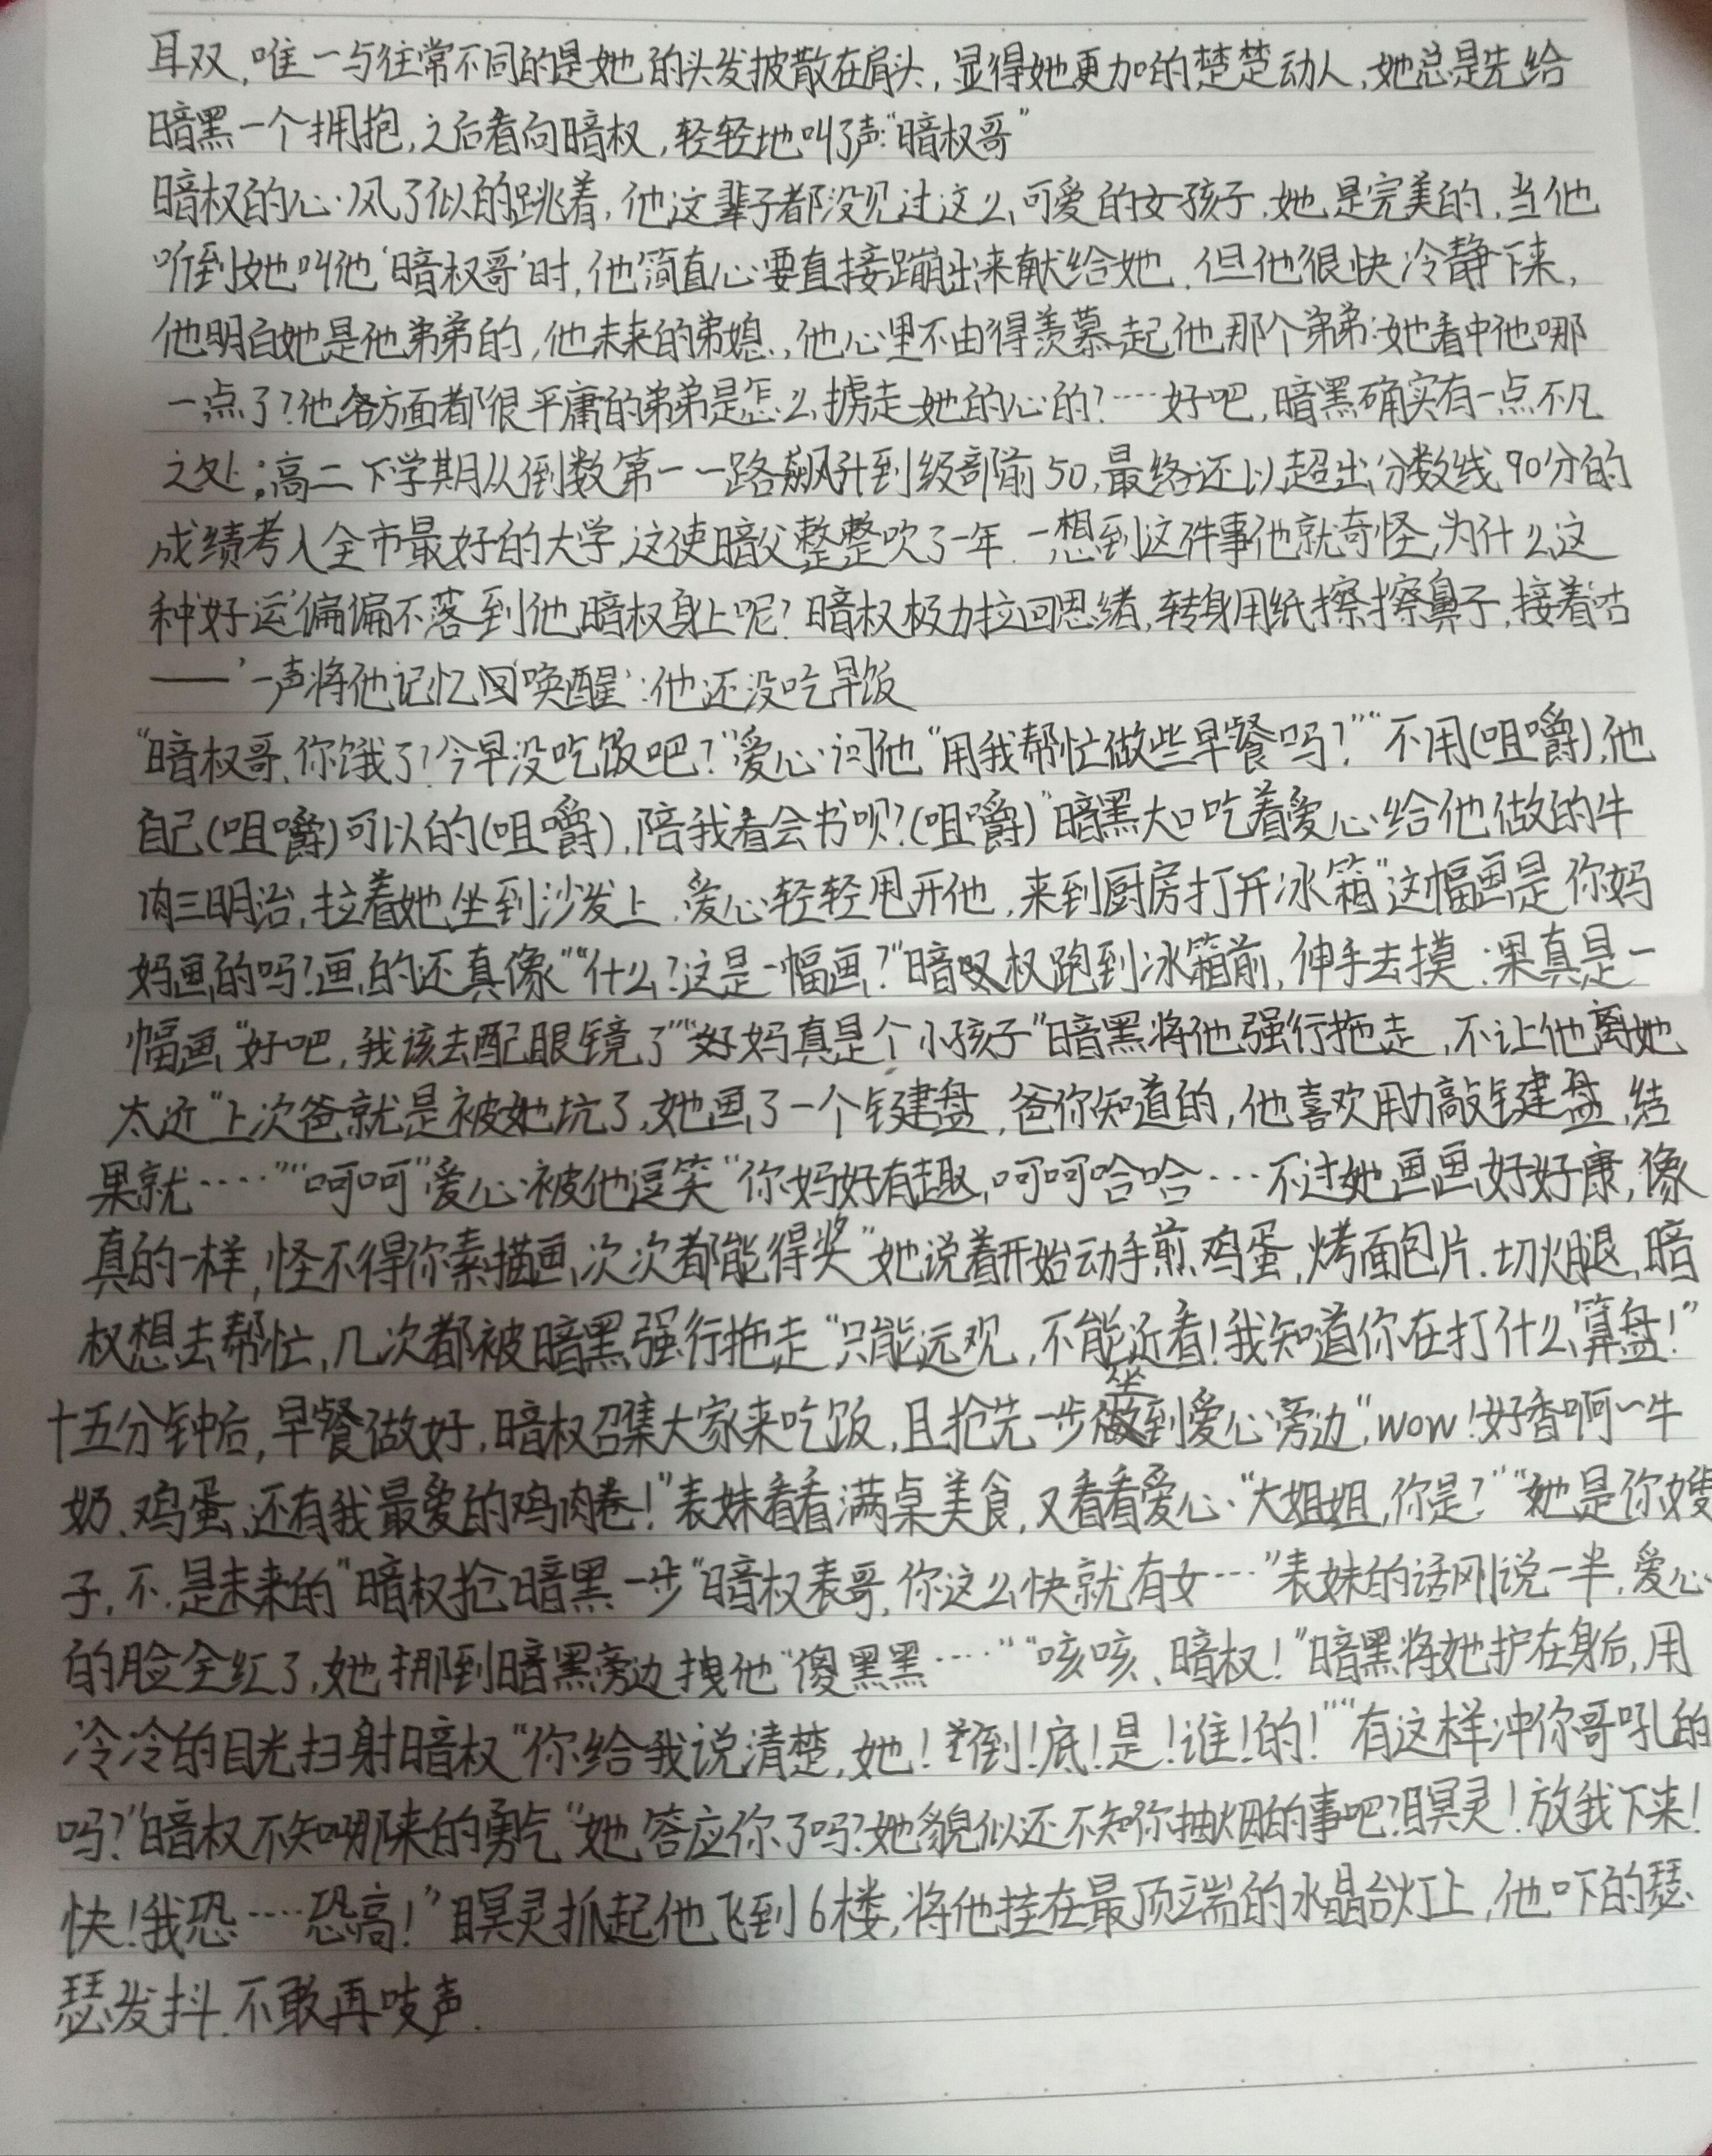 耳双,唯一与往常不同的是她的头发披散在肩头,显得她更加的楚楚动人,她总是先给
暗黑一个拥抱,之后看向暗权,轻轻地叫了声:“暗权哥”
暗权的心风了似的跳着,他这辈子都没见过这么可爱的女孩子,她是完美的,当他
听到她叫他‘暗权哥’时,他简直心要直接蹦出来献给她.但他很快冷静下来,
他明白她是他弟弟的,他未来的弟媳.,他心里不由得羡慕起他那个弟弟:她看中他哪
一点了?他各方面都很平庸的弟弟是怎么掳走她的心的?……好吧,暗黑确实有一点不凡
之处:高二下学期从倒数第一一路飙升到级部前50,最终还以超出分数线90分的
成绩考入全市最好的大学,这使暗父整整吹了一年.一想到这件事他就奇怪,为什么这
种‘好运’偏偏不落到他暗权身上呢?暗权极力拉回思绪,转身用纸擦擦鼻子,接着‘咕
——’一声将他记忆回‘唤醒’:他还没吃早饭
“暗权哥,你饿了?今早没吃饭吧?”爱心问他“用我帮忙做些早餐吗?”“不用(咀嚼),他
自己(咀嚼)可以的(咀嚼),陪我看会书呗?(咀嚼)”暗黑大口吃着爱心给他做的牛
肉三明治,拉着她坐到沙发上.爱心轻轻甩开他,来到厨房打开冰箱“这幅画是你妈
妈画的吗?画的还真像”“什么?这是一幅画?”暗权跑到冰箱前,伸手去摸:果真是一
幅画“好吧,我该去配眼镜了”“好妈真是个小孩子”暗黑将他强行拖走,不让他离她
太近“上次爸就是被她坑了,她画了一个键盘,爸你知道的,他喜欢用力敲键盘,结
果就……”“呵呵”爱心被他逗笑“你妈好有趣,呵呵哈哈…不过她画画好好康,像
真的一样,怪不得你素描画次次都能得奖”她说着开始动手煎鸡蛋,烤面包片.切火腿,暗
权想去帮忙,几次都被暗黑强行拖走“只能远观,不能近看!我知道你在打什么算盘!”
十五分钟后,早餐做好,暗权召集大家来吃饭,且抢先一步坐到爱心旁边“wow!好香啊~牛
奶、鸡蛋、还有我最爱的鸡肉卷!”表妹看看满桌美食,又看看爱心“大姐姐,你是?”“她是你嫂
子,不.是未来的”暗权抢暗黑一步“暗权表哥,你这么快就有女…”表妹的话刚说一半,爱心
的脸全红了,她挪到暗黑旁边拽他“傻黑黑……”“咳咳、暗权!”暗黑将她护在身后,用
冷冷的目光扫射暗权“你给我说清楚,她!到!底!是!谁!的!”“有这样冲你哥吼的
吗?”暗权不知哪来的勇气“她答应你了吗?她貌似还不知你抽烟的事吧?瞑灵!放我下来!
快!我恐……恐高!”瞑灵抓起他飞到6楼,将他挂在最顶端的水晶台灯上,他吓的瑟
瑟发抖.不敢再吱声.